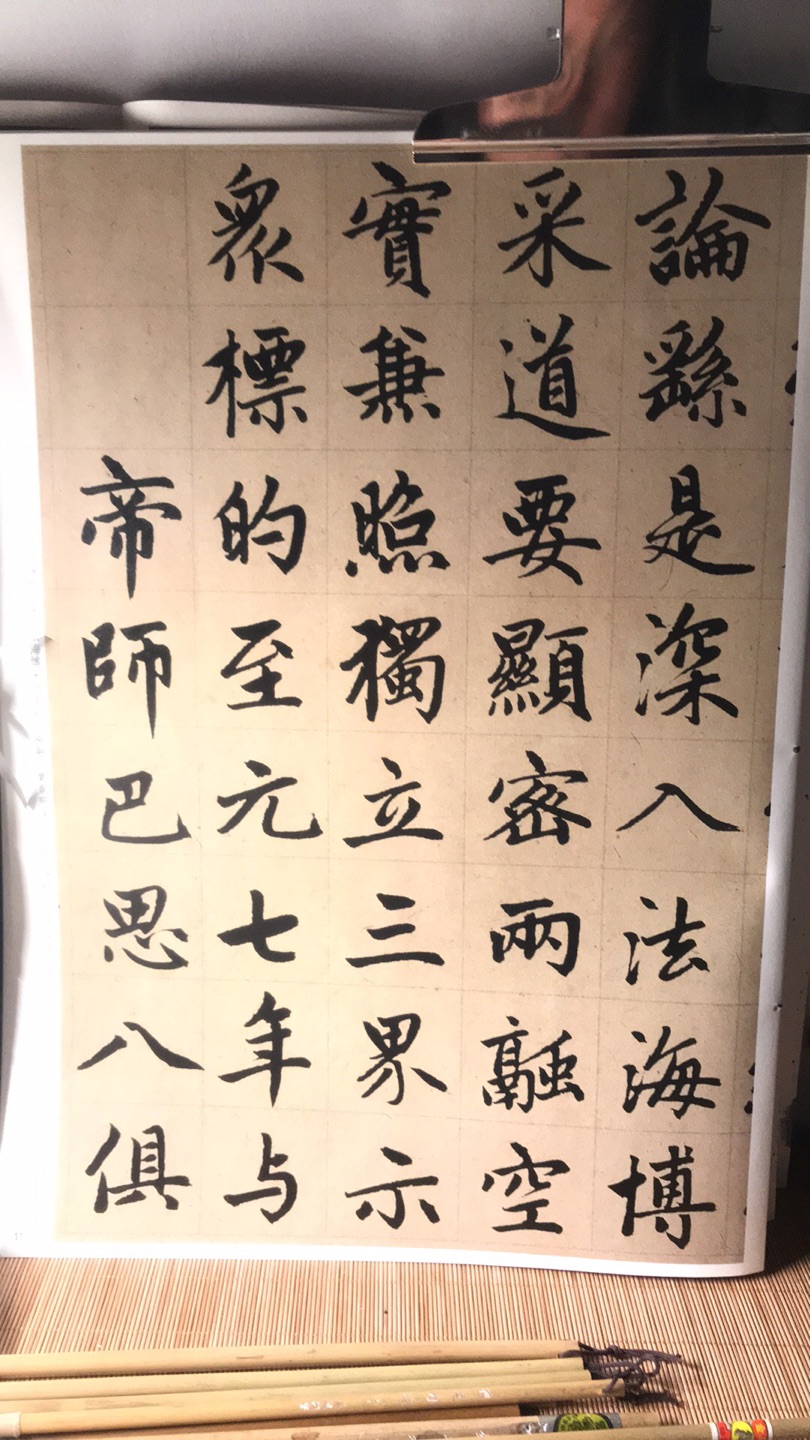 論繇是深入法海博
采道要顯密兩融空
實兼照獨立三界示
眾標的至元七年与
帝師巴思八俱
11